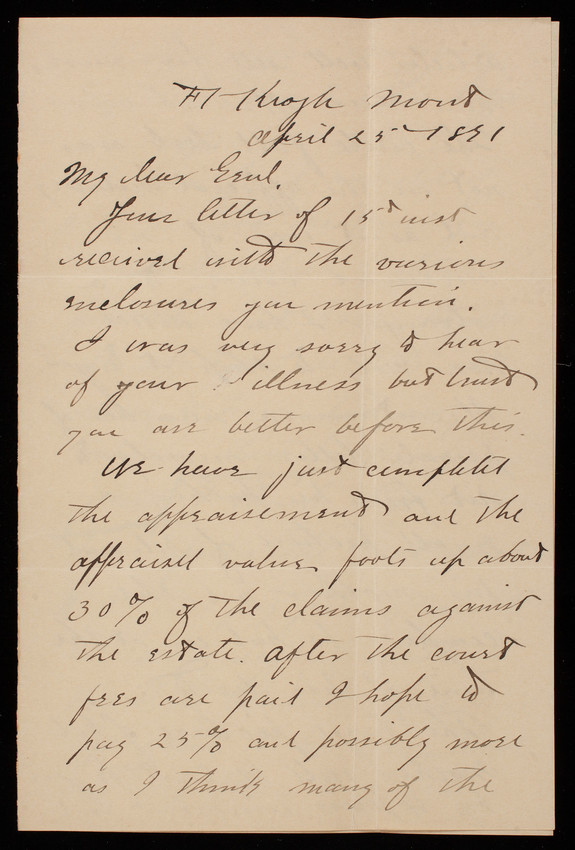 Ft Keogh Mont
April 25th 1891
My Dear Genl.
Your letter of 15th inst
received with the various
enclosures you mention.
I was very sorry to hear
of your illness but trust
you are better before this.
We have just completed
the appraisement and the
appraised value foots up about
30% of the claims against
the estate. After the court
fees are paid I hope to
pay 25% and possibly more
as I think many of the